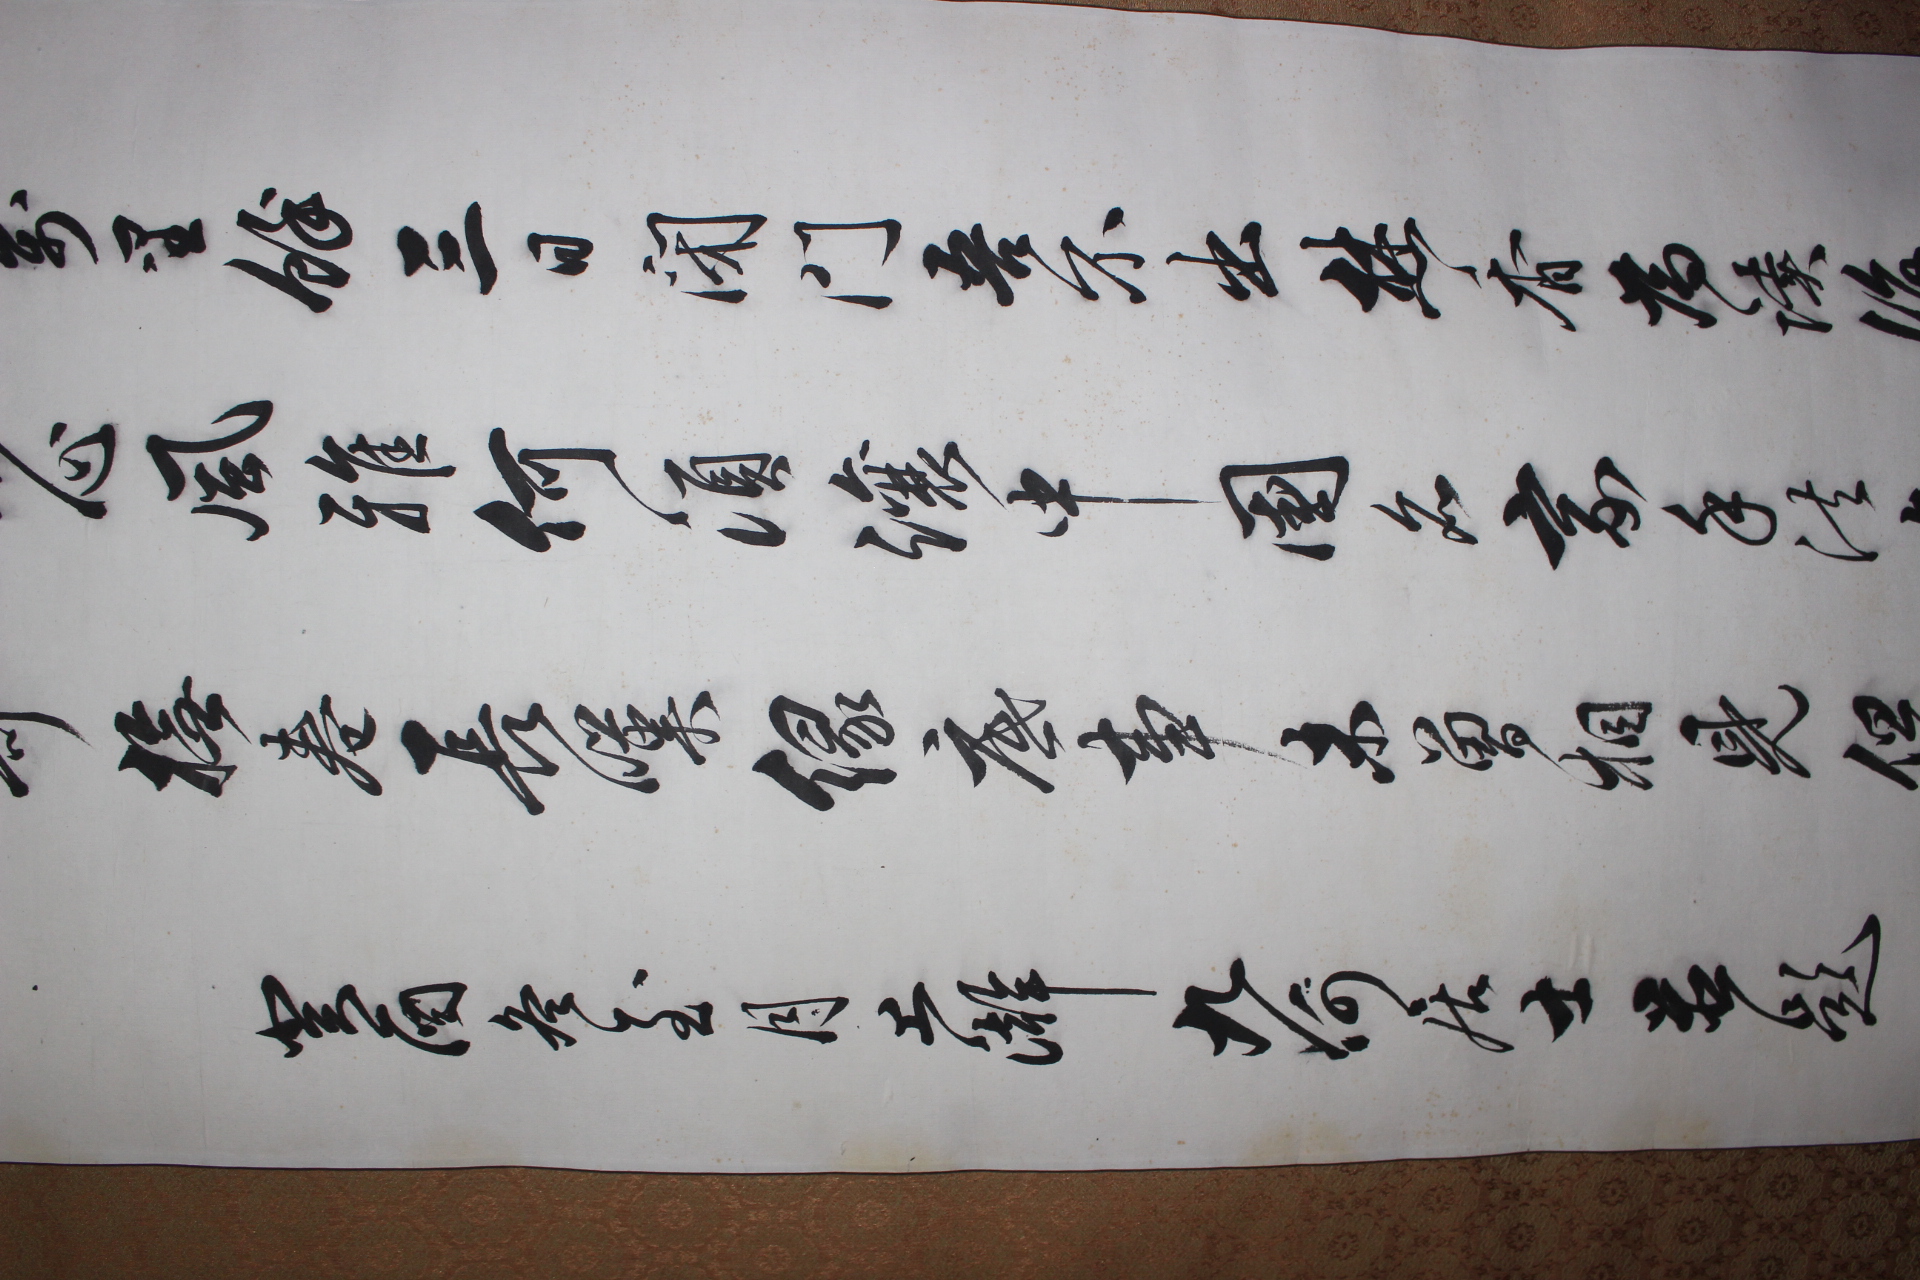 萬里餘三日閉門吾不出焚香為讀
心風雅何須讓中國名家手法
撫卷長嘆緣底事未曾相見但
癸酉冬至月上澣九何居士並題